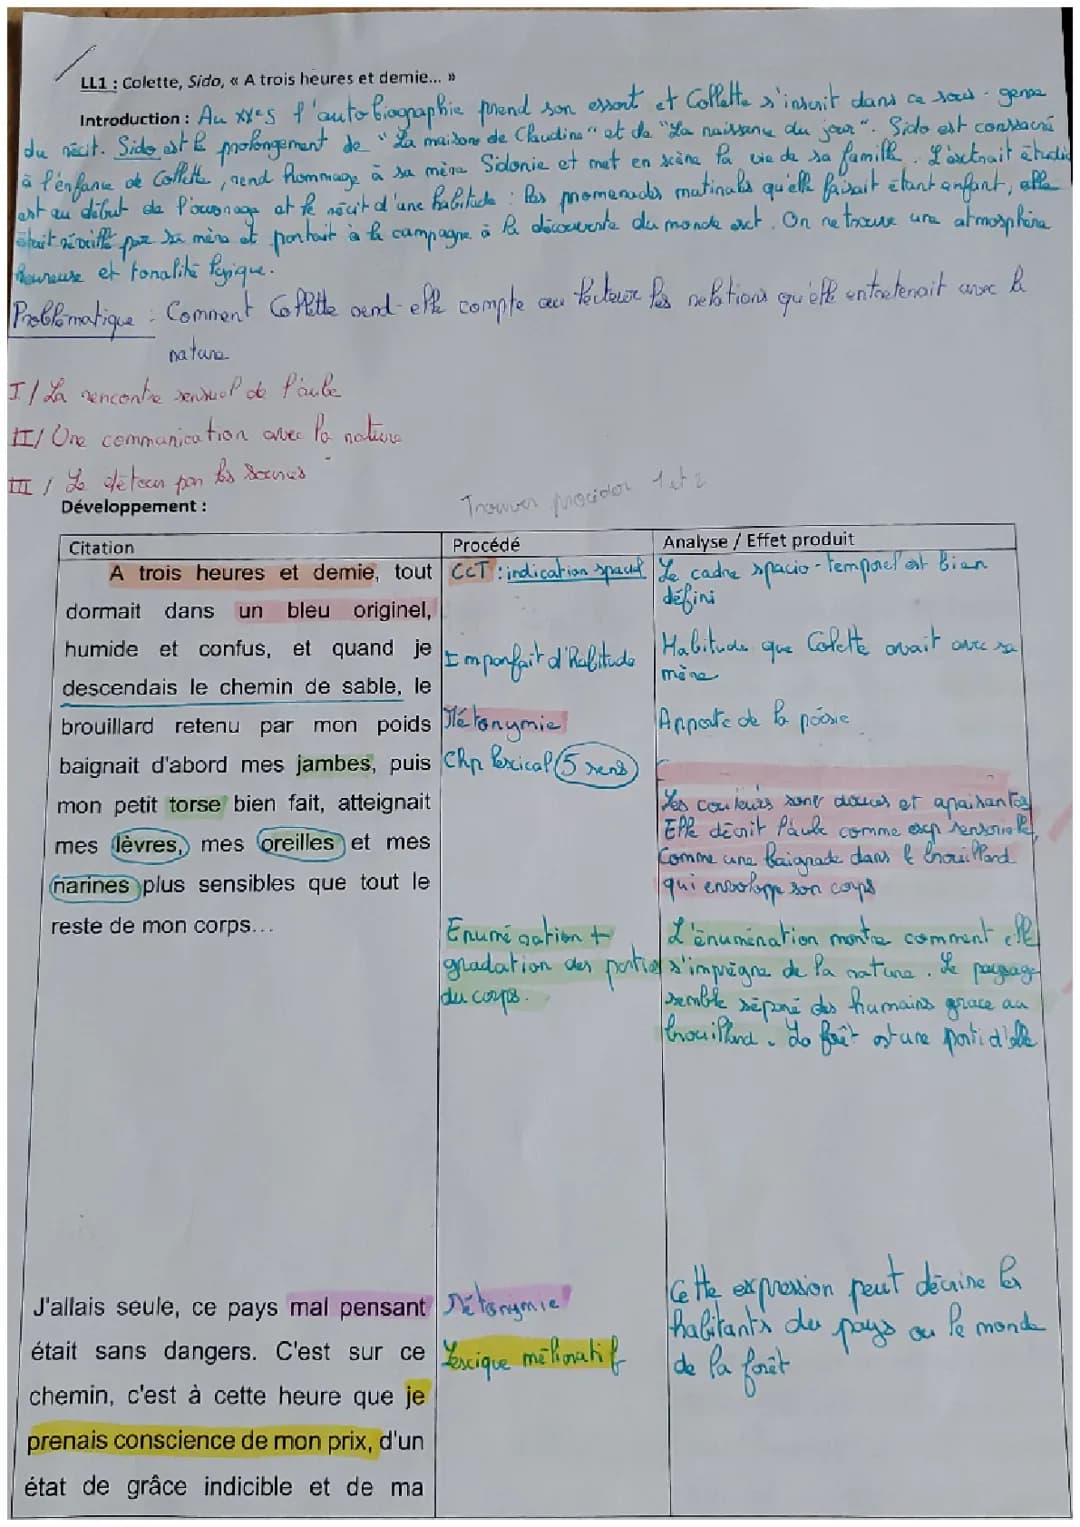 LL1 : Colette, Sido, « A trois heures et demie... »
Introduction : Au XXes l'autobiographie prend son essort et Collette s'inscrit dans ce sous-genre
du récit. Sido est le prolongement de "La maison de Claudine" et de "La naissance du jour". Sido est conssacré
à l'enfance de Collette, rend hommage à sa mère Sidonie et met en scène la vie de sa famille. L'extrait étudié
est au début de l'ouvrage et le récit d'une habitude : les promenades matinales qu'elle faisait étant enfant, elle
était réveillé par sa mère et partait à la campagne à la découverte du monde ext. On retrouve une atmosphère
heureuse et tonalité lyrique.
Problématique : Comment Collette rend-elle compte au lecteur les relations qu'elle entretenait avec la
nature
I / La rencontre sensuel de l'aube
II / Une communication avec la nature
III / Le détour par les sources
Trouver procider 1 et 2
Développement :
Citation Procédé Analyse / Effet produit
A trois heures et demie, tout CCT : indication spacial Le cadre spacio-temporel est bien
défini
dormait dans un bleu originel,
humide et confus, et quand je Imparfait d'habitude Habitude que Colette avait avec sa
mère
descendais le chemin de sable, le
brouillard retenu par mon poids Métonymie Apporte de la poésie
baignait d'abord mes jambes, puis Chp lexical 5 sens
mon petit torse bien fait, atteignait Les couleurs sont douces et apaisantes
Elle décrit l'aube comme exp sensorielle,
mes lèvres, mes oreilles et mes Comme une baignade dans le brouillard
narines plus sensibles que tout le qui enveloppe son corps
reste de mon corps... Enumération + L'énumération montre comment elle
gradation des parties s'imprègne de la nature. Le paysage
du corps. semble séparé des humains grace au
brouillard. La forêt est une parti d'elle
J'allais seule, ce pays mal pensant Métonymie Cette expression peut décrire les
habitants du pays ou le monde
était sans dangers. C'est sur ce Lexcique mélioratif de la forêt
chemin, c'est à cette heure que je
prenais conscience de mon prix, d'un
état de grâce indicible et de ma